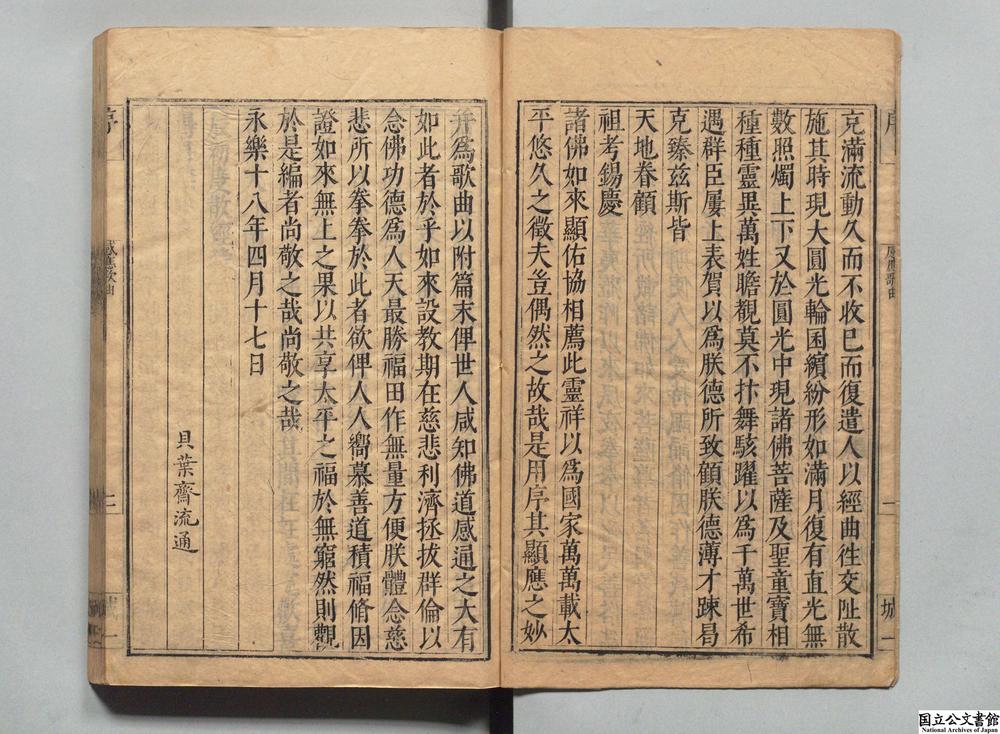 充滿流動久而不收已而復遣人以經曲徃交阯散
施其時現大圓光輪囷繽紛形如滿月復有直光無
數照燭上下又於圓光中現諸佛菩薩及聖童寶相
種種靈異萬姓瞻觀莫不抃舞駭躍以爲千萬世希
遇群臣屢上表賀以爲朕德所致顧朕德薄才踈曷
克臻兹斯皆
天地眷顧
祖考錫慶
諸佛如來顯佑協相薦此靈祥以爲國家萬萬載太
平悠久之徵夫豈偶然之故哉是用序其顯應之妙
并爲歌曲以附篇末俾世人咸知佛道感通之大有
如此者於乎如來設教期在慈悲利濟拯拔群倫以
念佛功德爲人天最勝福田作無量方便朕體念慈
悲所以拳拳於此者欲俾人人嚮慕善道積福脩因
證如來無上之果以共享太平之福於無窮然則觀
於是編者尚敬之哉尚敬之哉
永樂十八年四月十七日
貝葉齋流通
序
感應歌曲
二
城一
国立公文書館
National Archives of Japan